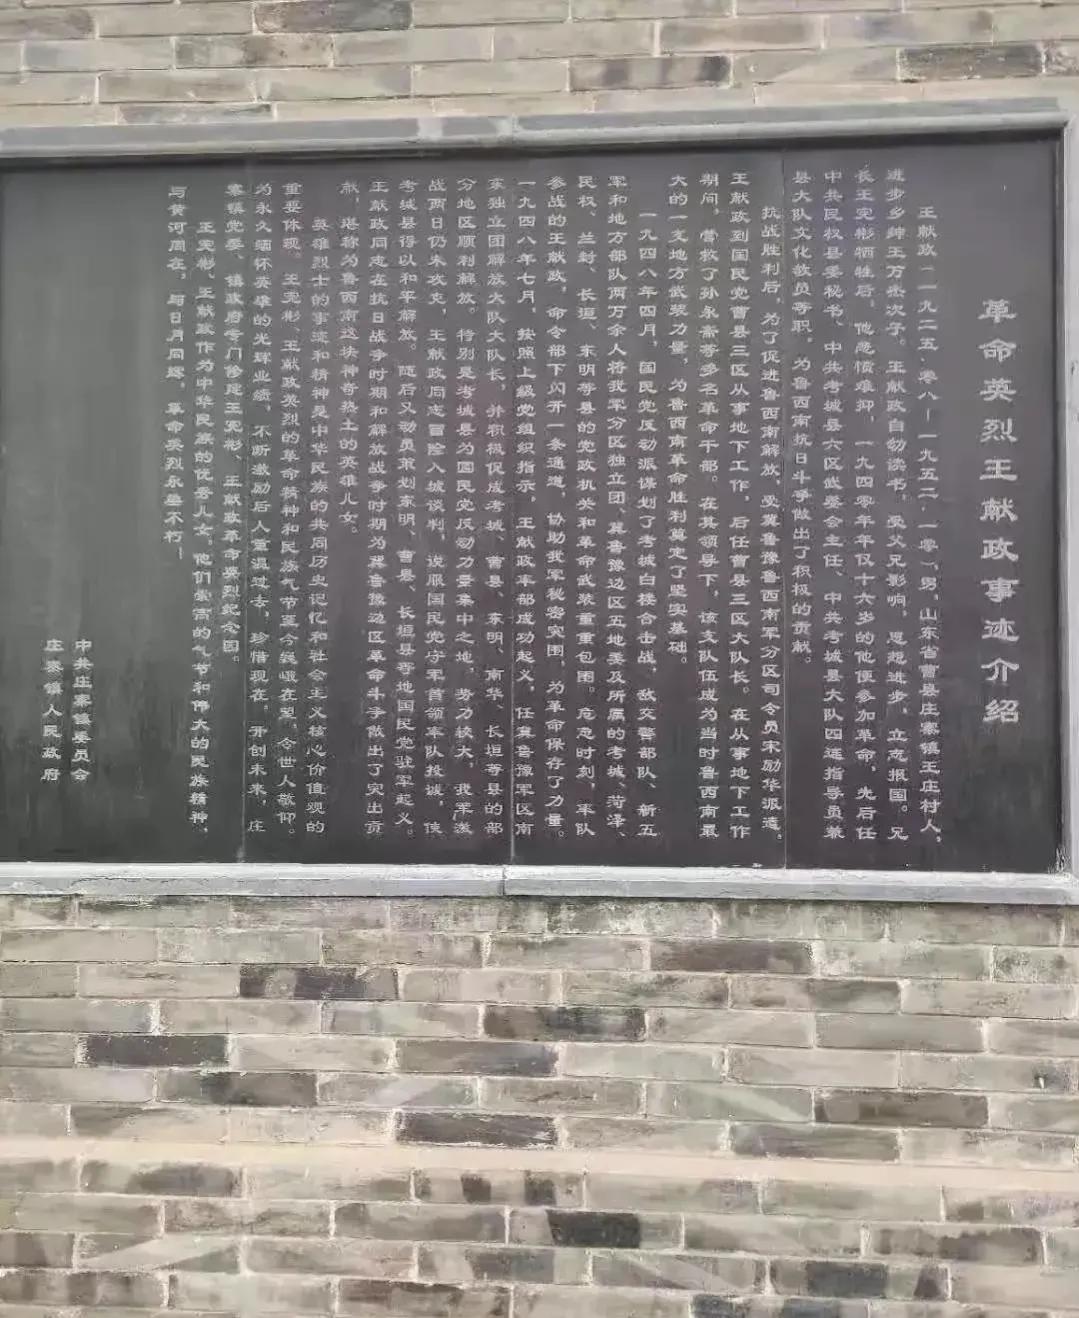 革命英烈王献政事迹介绍
王献政(一九二五.零八—一九五二.一零),男,山东省曹县庄寨镇王庄村人,
进步乡绅王万杰次子。王献政自幼读书,受父兄影响,思想进步,立志报国。兄
长王宪彬牺牲后,他悲愤难抑,一九四零年年仅十六岁的他便参加革命,先后任
中共民权县委秘书、中共考城县六区武委会主任、中共考城县大队四连指导员兼
县大队文化教员等职,为鲁西南抗日斗争做出了积极的贡献。
抗战胜利后,为了促进鲁西南解放,受冀鲁豫鲁西南军分区司令员宋励华派遣,
王献政到国民党曹县三区从事地下工作,后任曹县三区大队长。在从事地下工作
期间,营救了孙永斋等多名革命干部。在其领导下,该支队伍成为当时鲁西南最
大的一支地方武装力量,为鲁西南革命胜利奠定了坚实基础。
一九四八年四月,国民党反动派谋划了考城白楼合击战,敌交警部队、新五
军和地方部队两万余人将我军分区独立团、冀鲁豫边区五地委及所属的考城、菏泽、
民权、兰封、长垣、东明等县的党政机关和革命武装重重包围。危急时刻,率队
参战的王献政,命令部下闪开一条通道,协助我军秘密突围,为革命保存了力量。
一九四八年七月,按照上级党组织指示,王献政率部成功起义,任冀鲁豫军区南
东独立团解放大队大队长,并积极促成考城、曹县、东明、南华、长垣等县的部
分地区顺利解放。特别是考城县为国民党反动力量集中之地,势力较大,我军激
战两日仍未攻克,王献政同志冒险入城谈判,说服国民党守军首领率队投诚,使
考城县得以和平解放。随后又动员策划东明、曹县、长垣县等地国民党驻军起义。
王献政同志在抗日战争时期和解放战争时期为冀鲁豫边区革命斗争做出了突出贡
献,堪称为鲁西南这块神奇热土的英雄儿女。
英雄烈士的事迹和精神是中华民族的共同历史记忆和社会主义核心价值观的
重要体现。王宪彬、王献政英烈的革命精神和民族气节至今巍峨在望,令世人敬仰。
为永久缅怀英雄的光辉业绩,不断激励后人重温过去,珍惜现在,开创未来,庄
寨镇党委、镇政府专门修建王宪彬、王献政革命英烈纪念园。
王宪彬、王献政作为中华民族的优秀儿女,他们崇高的气节和伟大的民族精神,
与黄河同在,与日月同辉,革命英烈永垂不朽!
中共庄寨镇委员会
庄寨镇人民政府